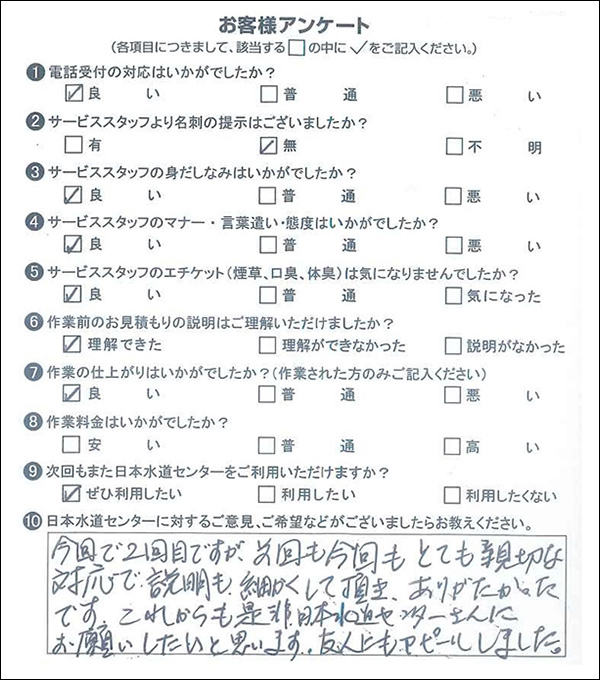 お客様アンケート
(各項目につきまして、該当する□の中に✓をご記入ください。)
❶電話受付の対応はいかがでしたか?
☑良い □普通 □悪い
❷サービススタッフより名刺の提示はございましたか?
□有 ☑無 □不明
❸サービススタッフの身だしなみはいかがでしたか?
☑良い □普通 □悪い
❹サービススタッフのマナー・言葉遣い・態度はいかがでしたか?
☑良い □普通 □悪い
❺サービススタッフのエチケット(煙草、口臭、体臭)は気になりませんでしたか?
☑良い □普通 □気になった
❻作業前のお見積もりの説明はご理解いただけましたか?
☑理解できた □理解ができなかった □説明がなかった
❼作業の仕上がりはいかがでしたか?(作業された方のみご記入ください)
☑良い □普通 □悪い
❽作業料金はいかがでしたか?
□安い □普通 □高い
❾次回もまた日本水道センターをご利用いただけますか?
☑ぜひ利用したい □利用したい □利用したくない
❿日本水道センターに対するご意見、ご希望などがございましたらお教えください。
今回で2回目ですが、前回も今回もとても親切な
対応で、説明も細かくして頂き、ありがたかった
です。これからも是非日本水道センターさんに
お願いしたいと思います。友人にもアピールしました。